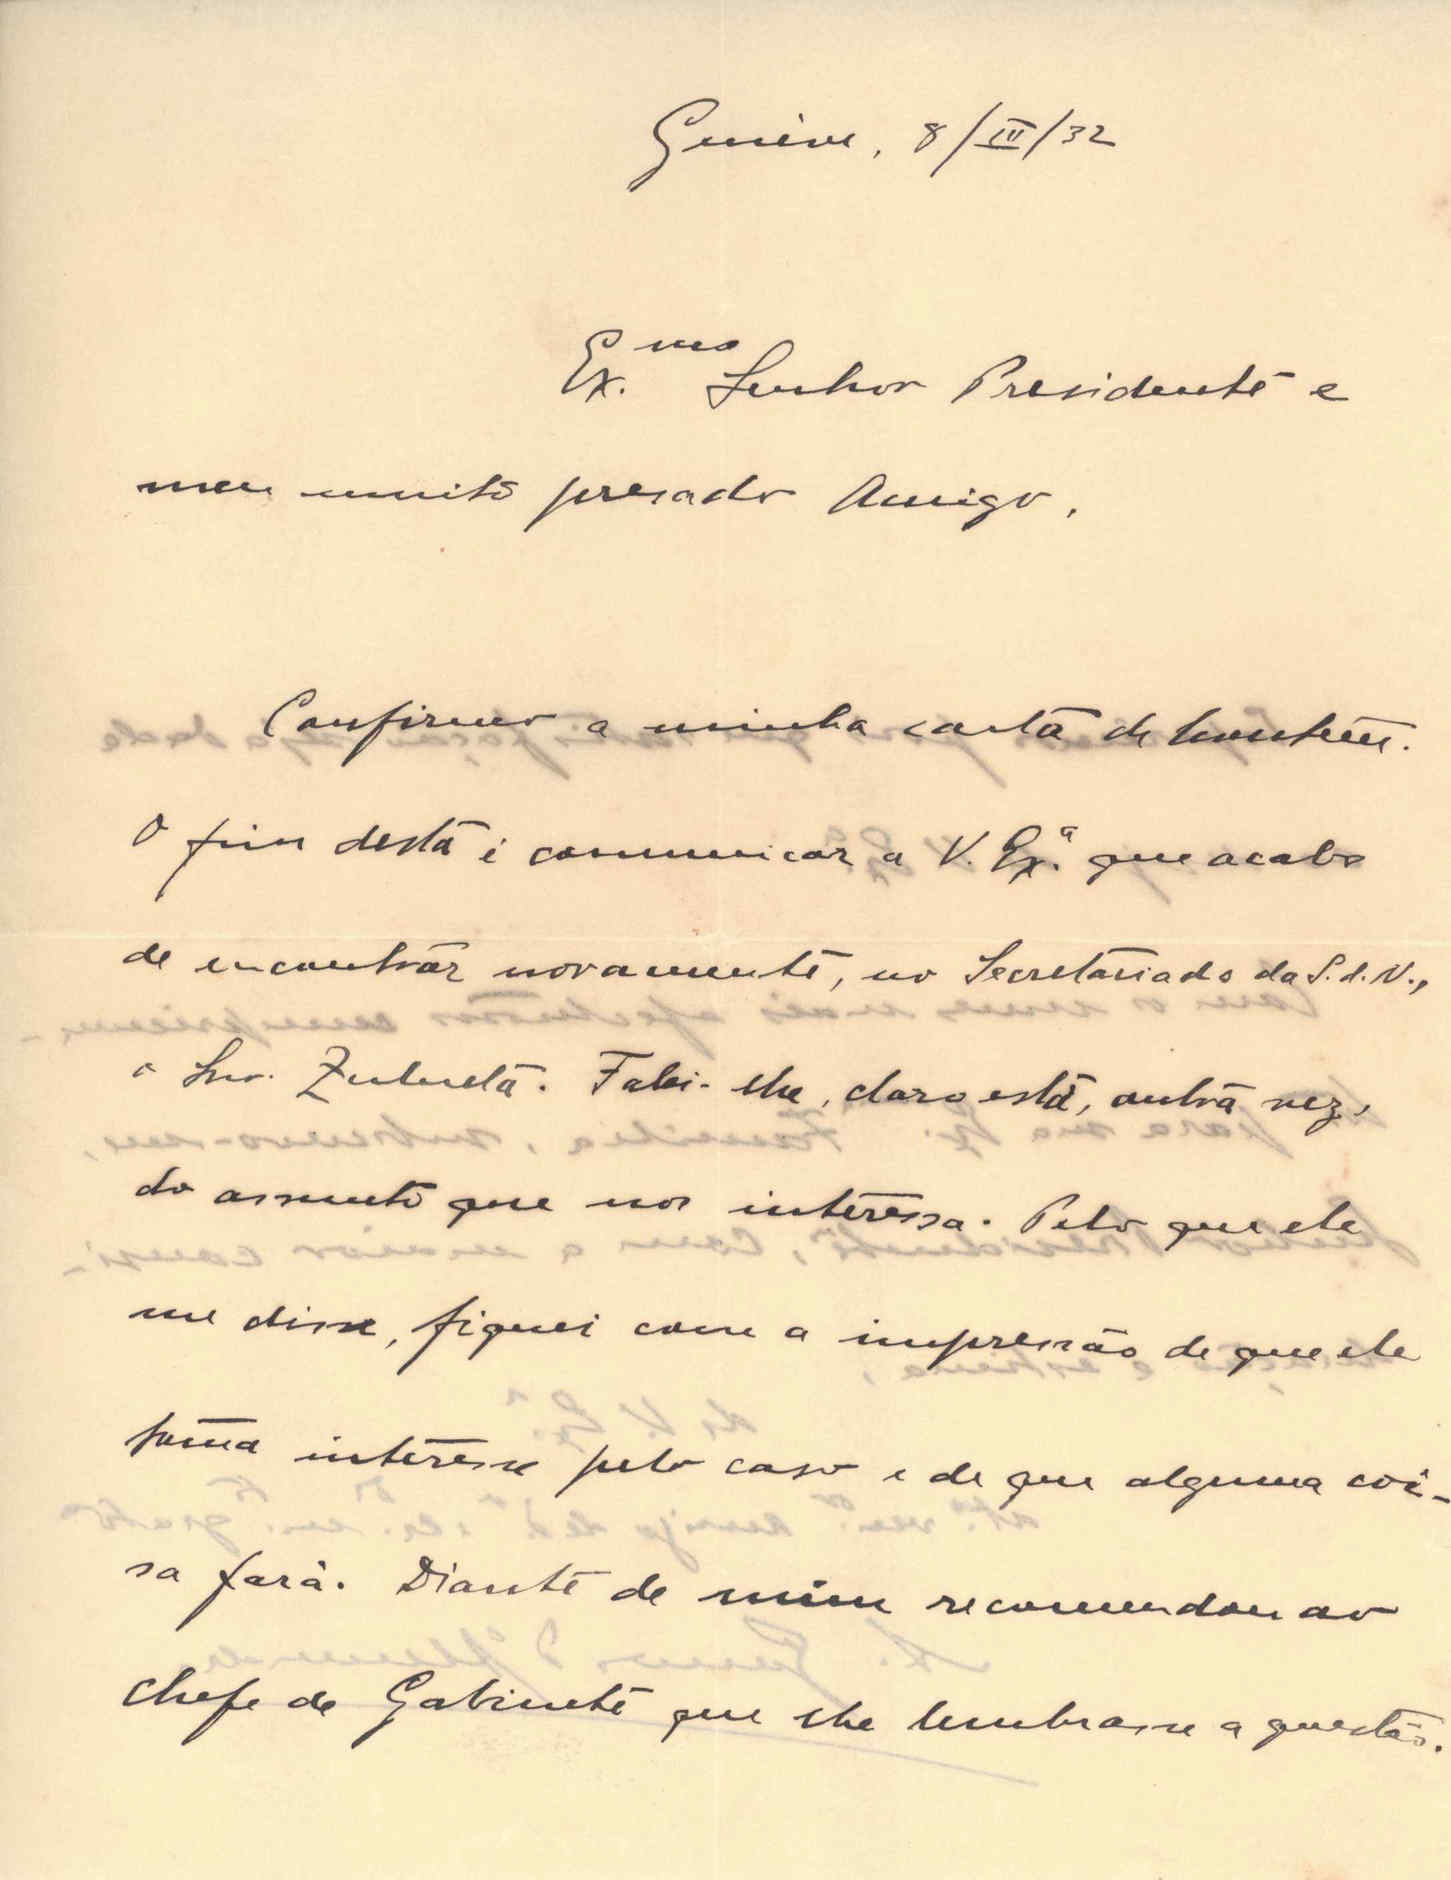 Genève, 8/III/32
Ex.mo Senhor Presidente e
meu muito presado Amigo,
Confirmo a minha carta de hontem.
O fim desta é comunicar a V. Ex.ª que acabo
de encontrar novamente, no Secretariado da S. d. N.,
o Snr. Zulueta. Falei-lhe, claro está, outra vez,
do assunto que nos interessa. Pelo que ele
me disse, fiquei com a impressão de que ele
toma interesse pelo caso e de que alguma coi-
sa fará. Diante de mim recomendou ao
chefe de Gabinete que lhe lembrasse a questão.